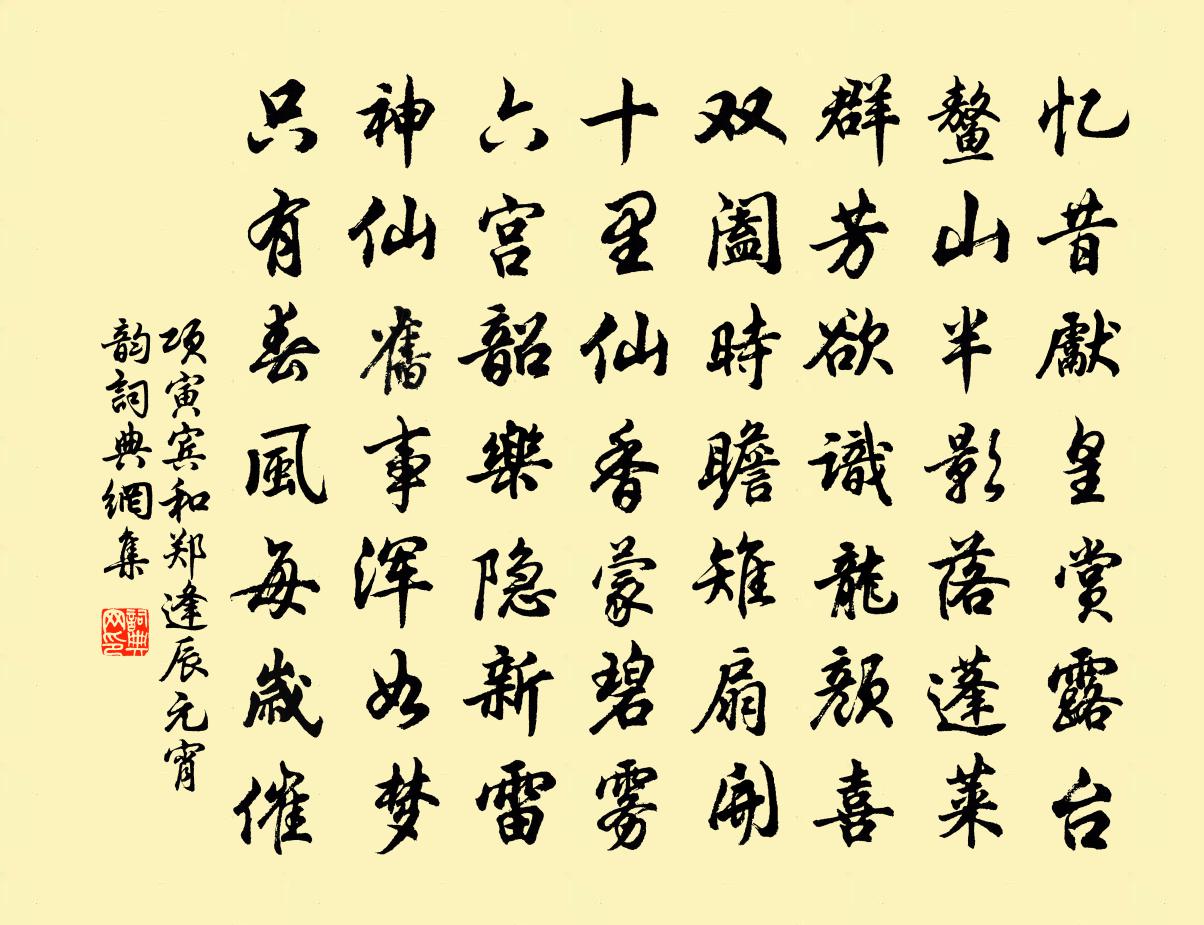 忆昔獻皇赏露台
鳌山半影落蓬莱
群芳欲識龍顔喜
双阖時瞻雉扇開
十里仙香蒙碧雾
六宫韶樂隐新雷
神仙舊事浑如梦
只有春風每歲催
项寅宾和郑逢辰元宵
韵詞典網集
詞典网印